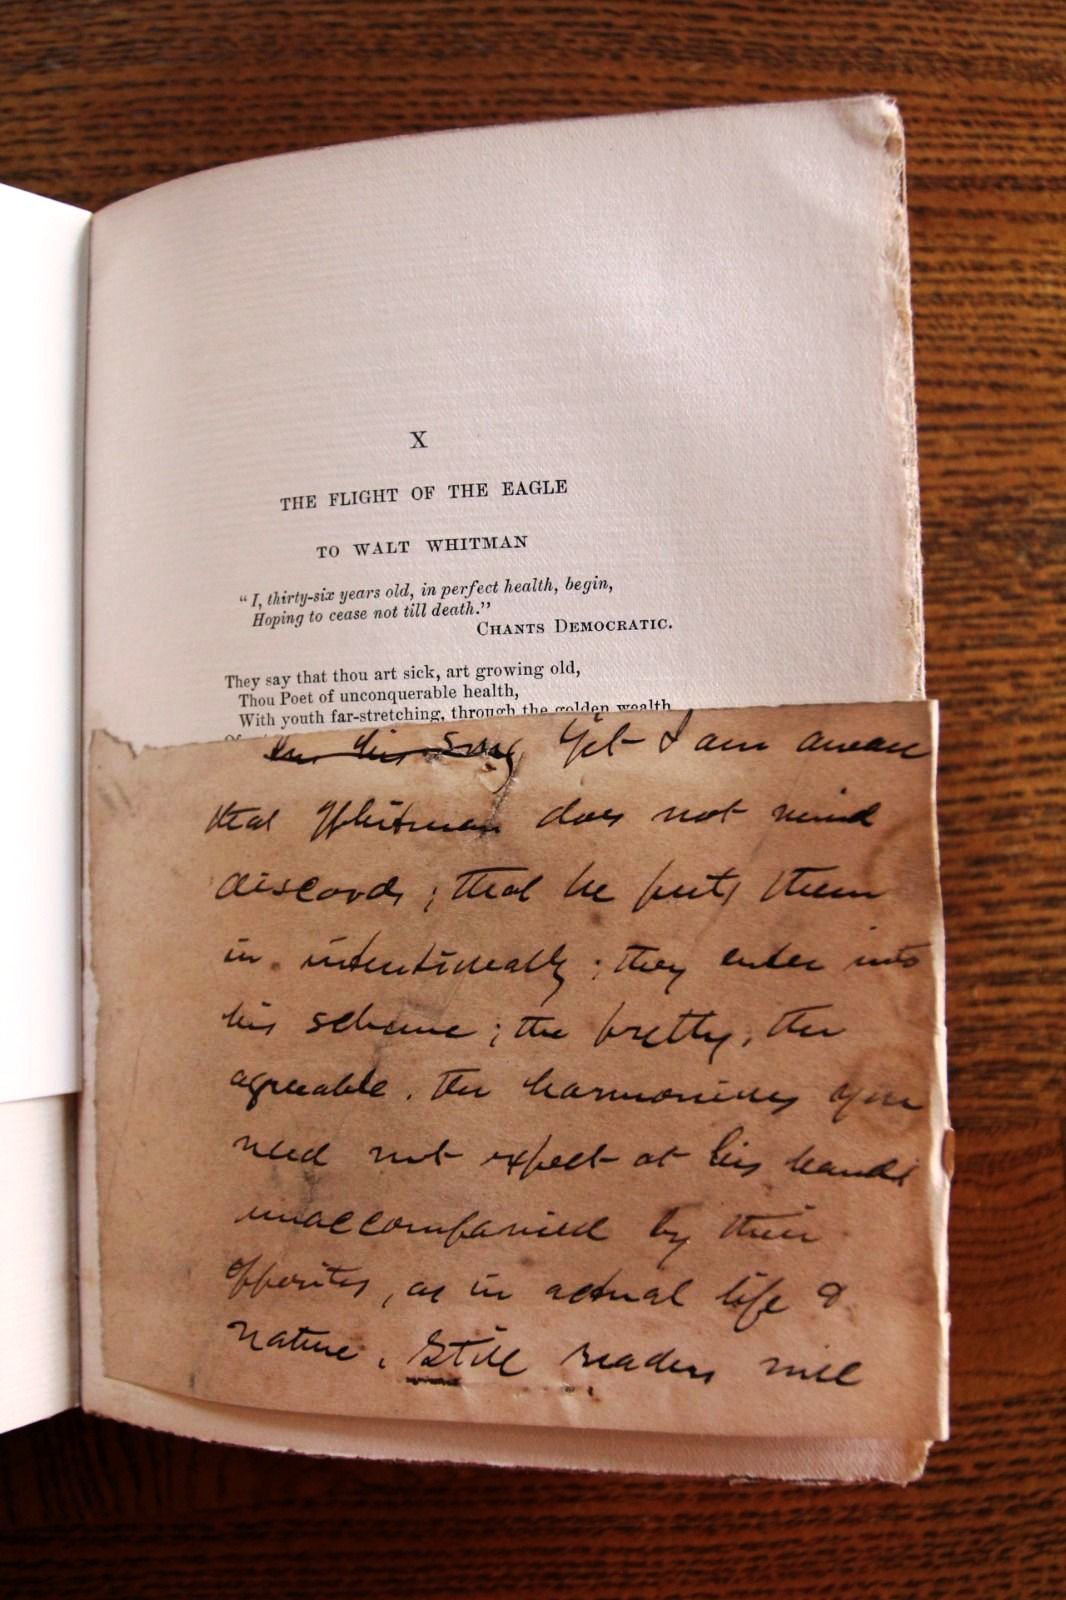 X
THE FLIGHT OF THE EAGLE
TO WALT WHITMAN
"I, thirty-six years old, in perfect health, begin,
Hoping to cease not till death."
CHANTS DEMOCRATIC.
They say that thou art sick, art growing old,
Thou Poet of unconquerable health,
With youth far-stretching, through the golden wealth
in his song Yet I am aware
that Whitman does not mind
discords; that he puts them
in intentionally; they enter into
his scheme; the pretty, the
agreeable, the harmonious you
need not expect at his hands
unaccompanied by their
opposites, as in actual life &
nature. Still readers will